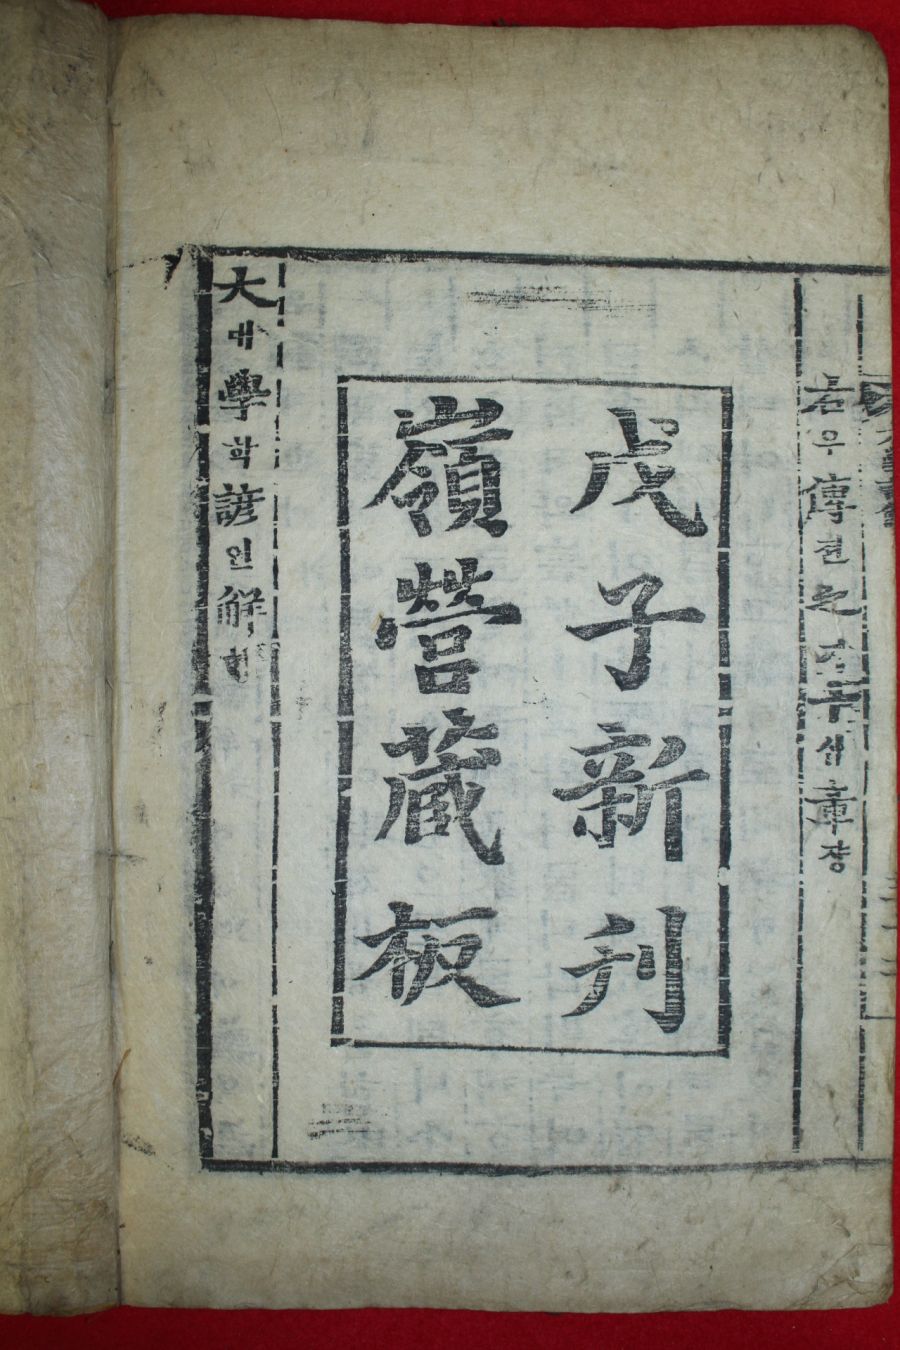 右우傳젼之지十십章쟝
戊子新刊
嶺營藏板
大대學학諺언解해